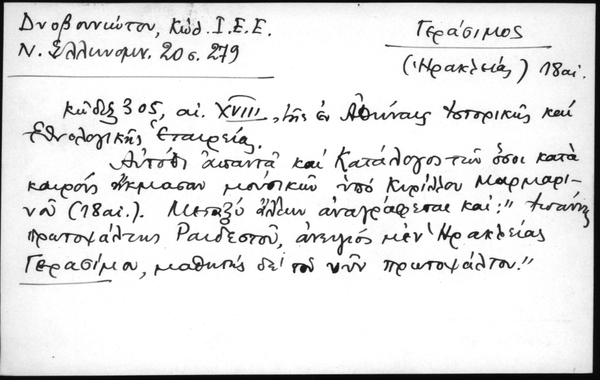 Δυοβουνιώτου, Κώδ. Ι.Ε.Ε.
Ν. Ἑλληνομν. 20 σ. 279
Γεράσιμος
(Ἡρακλείας) 18 αἰ.
Κῶδιξ 305, αἰ. XVIII, τῆς ἐν Ἀθήναις Ἱστορικῆς καὶ
Ἐθνολογικῆς Ἑταιρείας.
Αὐτόθι ἀπαντᾶ καὶ Κατάλογος τῶν ὅσοι κατὰ
καιροὺς ἤκμασαν μουσικῶν ὑπὸ Κυρίλλου Μαρμαρι-
νοῦ (18 αἰ.). Μεταξὺ ἄλλων ἀναγράφεται καί: "Ἰωάννης
πρωτοψάλτης Ραιδεστοῦ, ἀνεψιὸς μὲν Ἡρακλείας
Γερασίμου, μαθητὴς δὲ τοῦ νῦν πρωτοψάλτου."